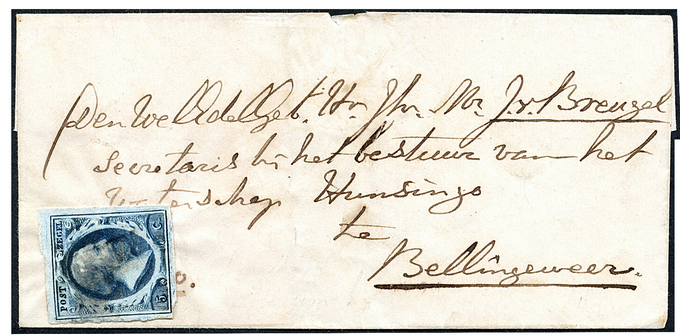 Den WelEdelGeb. Hr. Jhr. Mr. J. v. Breugel
Secretaris bij het bestuur van het
Waterschap Hunsingo
te
Bellingeweer.
POST ZEGEL
5 C